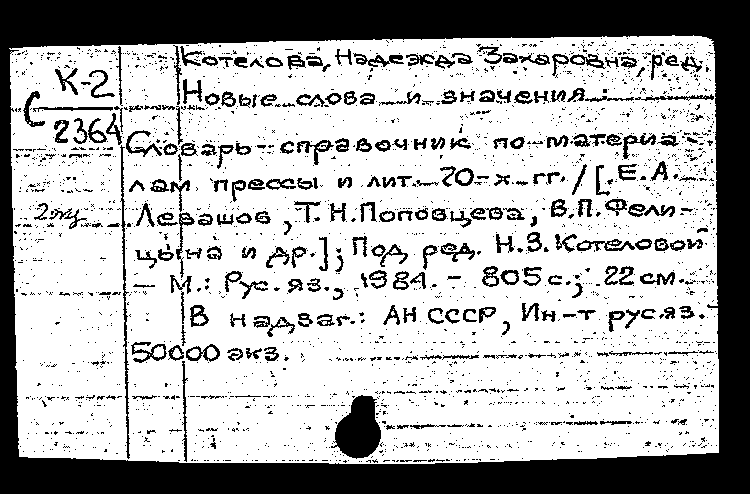 Котелова, Надежда Захаровна, ред.
К-2
Новые слова и значения:
С 2364
Словарь-справочник по материа-
лам прессы и лит. 70-х гг. / [Е.А.
2 экз
Левашов, Т.Н.Поповцева, В.П.Фели-
цына и др.]; Под ред. Н.З.Котеловой
– М.: Рус. яз., 1984. – 805 с.; 22 см.
В надзаг.: АН СССР, Ин-т рус.яз.
50000 экз.